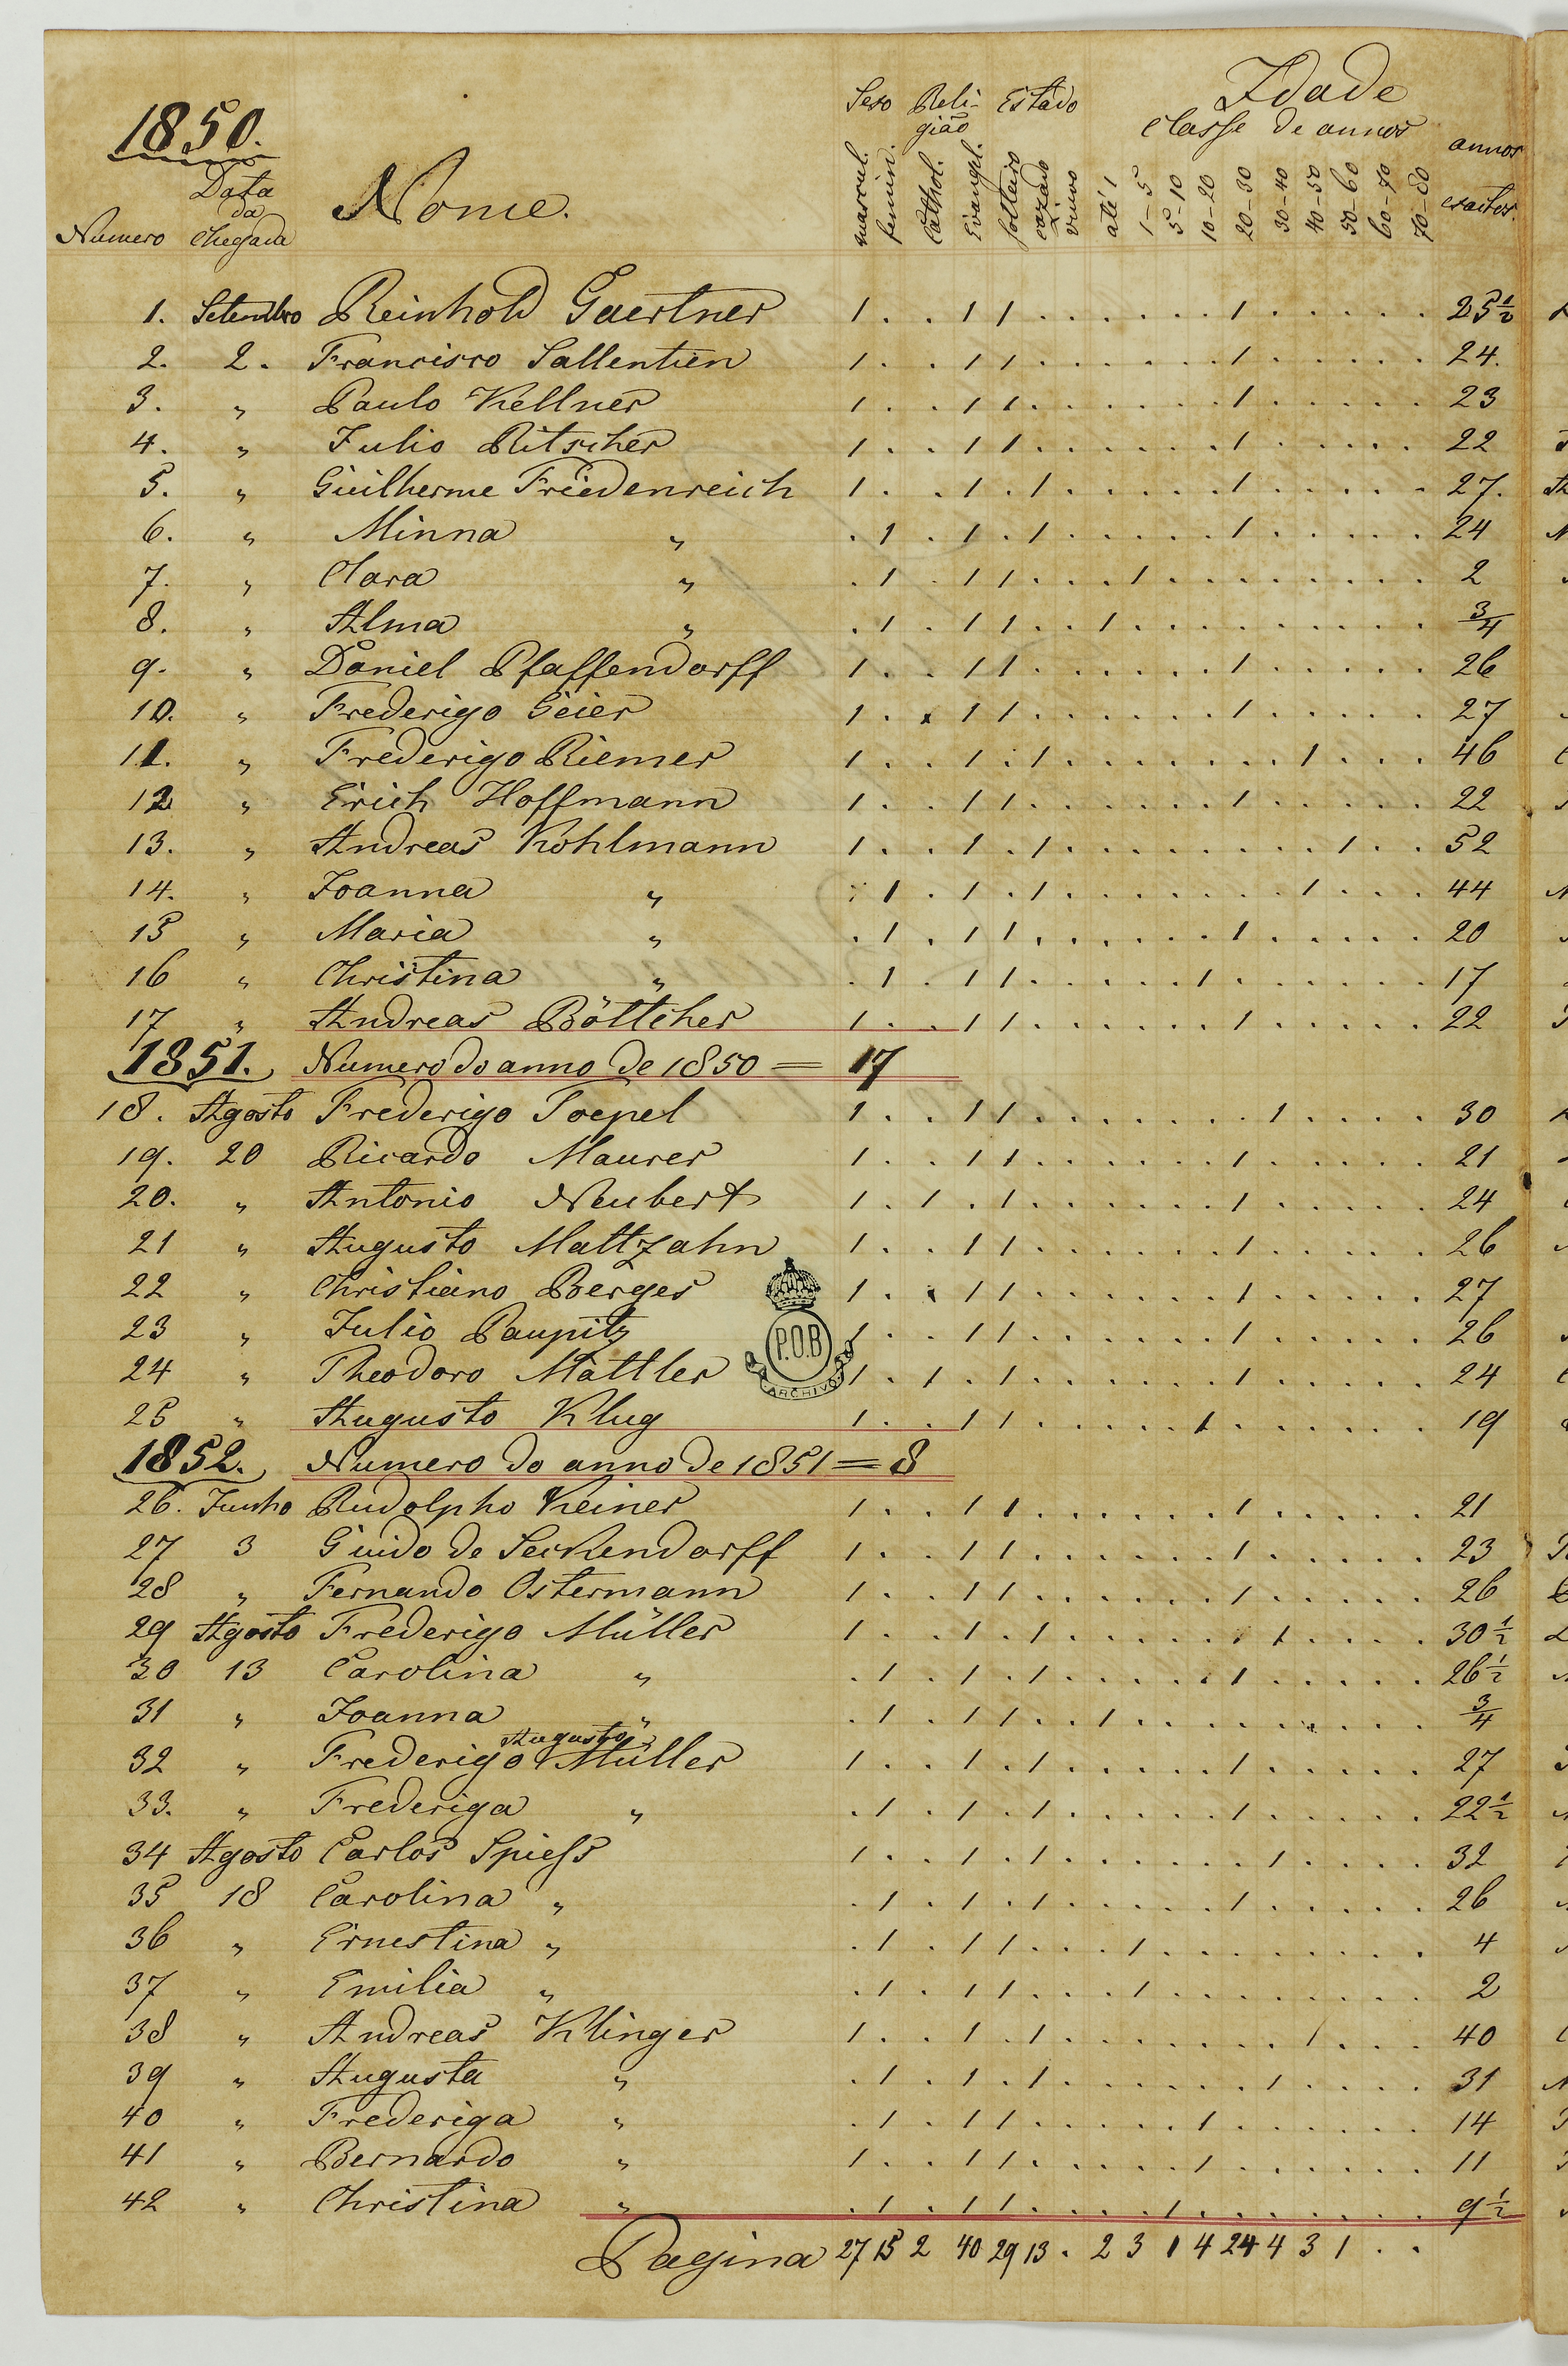 1850.
Sexo Religião Estado Idade
Classe de annos annos exactos.
Numero Data da Chegada Nome. mascul. femin. Cathol. Evangel. solteiro cazado viuvo até 1 1-5 5-10 10-20 20-30 30-40 40-50 50-60 60-70 70-80
1. Setembro Reinhold Gaertner 1 . . 1 1 . . . . . . 1 . . . . . 25½
2. 2. Francisco Sallentien 1 . . 1 1 . . . . . . 1 . . . . . 24.
3. " Paulo Kellner 1 . . 1 1 . . . . . . 1 . . . . . 23
4. " Julio Ritscher 1 . . 1 1 . . . . . . 1 . . . . . 22
5. " Guilherme Friedenreich 1 . . 1 . 1 . . . . . 1 . . . . . 27.
6. " Minna " . 1 . 1 . 1 . . . . . 1 . . . . . 24
7. " Clara " . 1 . 1 1 . . . 1 . . . . . . . . 2
8. " Alma " . 1 . 1 1 . . 1 . . . . . . . . . ¾
9. " Daniel Pfaffendorff 1 . . 1 1 . . . . . . 1 . . . . . 26
10. " Frederigo Geier 1 . . 1 1 . . . . . . 1 . . . . . 27
11. " Frederigo Riemer 1 . . 1 . 1 . . . . . . . 1 . . . 46
12 " Erich Hoffmann 1 . . 1 1 . . . . . . 1 . . . . . 22
13. " Andreas Kohlmann 1 . . 1 . 1 . . . . . . . . 1 . . 52
14. " Joanna " . 1 . 1 . 1 . . . . . . . 1 . . . 44
15 " Maria " . 1 . 1 1 . . . . . . 1 . . . . . 20
16 " Christina " . 1 . 1 1 . . . . . 1 . . . . . . 17
17 " Andreas Böttcher 1 . . 1 1 . . . . . . 1 . . . . . 22
1851. Numero do anno de 1850 = 17
18. Agosto Frederigo Toepel 1 . . 1 1 . . . . . . . 1 . . . . 30
19. 20 Ricardo Maurer 1 . . 1 1 . . . . . . 1 . . . . . 21
20. " Antonio Neubert 1 . 1 . 1 . . . . . . 1 . . . . . 24
21 " Augusto Mattzahn 1 . . 1 1 . . . . . . 1 . . . . . 26
22 " Christiano Berges 1 . . 1 1 . . . . . . 1 . . . . . 27
23 " Julio Paupitz 1 . . 1 1 . . . . . . 1 . . . . . 26
24 " Theodoro Mattler 1 . 1 . 1 . . . . . . 1 . . . . . 24
P.O.B
ARCHIVO
25 " Augusto Klug 1 . . 1 1 . . . . . 1 . . . . . . 19
1852. Numero do anno de 1851 = 8
26. Junho Rudolpho Keiner 1 . . 1 1 . . . . . . 1 . . . . . 21
27 3 Guido de Seckendorff 1 . . 1 1 . . . . . . 1 . . . . . 23
28 " Fernando Ostermann 1 . . 1 1 . . . . . . 1 . . . . . 26
29 Agosto Frederigo Müller 1 . . 1 . 1 . . . . . . 1 . . . . 30½
30 13 Carolina " . 1 . 1 . 1 . . . . . 1 . . . . . 26½
31 " Joanna " . 1 . 1 1 . . 1 . . . . . . . . . ¾
32 " Frederigo Augusto Müller 1 . . 1 . 1 . . . . . 1 . . . . . 27
33. " Frederiga " . 1 . 1 . 1 . . . . . 1 . . . . . 22½
34 Agosto Carlos Spiess 1 . . 1 . 1 . . . . . . 1 . . . . 32
35 18 Carolina " . 1 . 1 . 1 . . . . . 1 . . . . . 26
36 " Ernestina " . 1 . 1 1 . . . 1 . . . . . . . . 4
37 " Emilia " . 1 . 1 1 . . . 1 . . . . . . . . 2
38 " Andreas Klinger 1 . . 1 . 1 . . . . . . . 1 . . . 40
39 " Augusta " . 1 . 1 . 1 . . . . . . 1 . . . . 31
40 " Frederiga " . 1 . 1 1 . . . . . 1 . . . . . . 14
41 " Bernardo " 1 . . 1 1 . . . . . 1 . . . . . . 11
42 " Christina " . 1 . 1 1 . . . . 1 . . . . . . . 9½
Pagina 27 15 2 40 29 13 . 2 3 1 4 24 4 3 1 . .